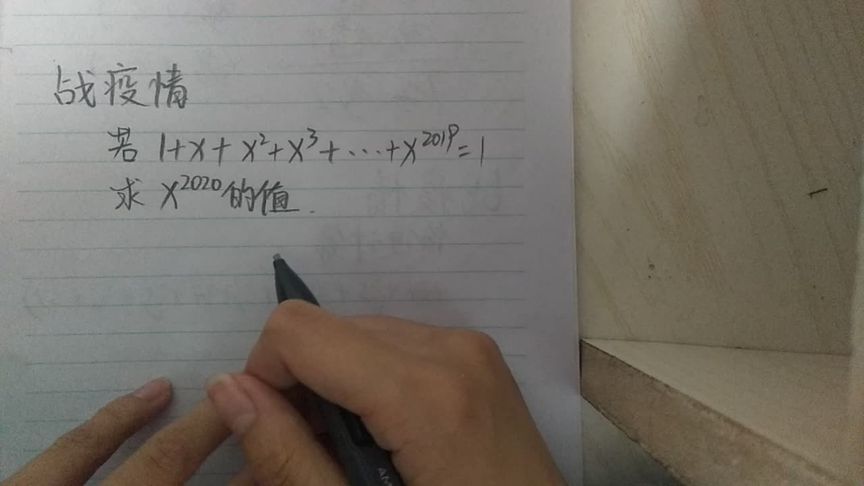 战疫情
若 1+x+x²+x³+…+x²⁰¹⁹=1
求 x²⁰²⁰的值.
AM